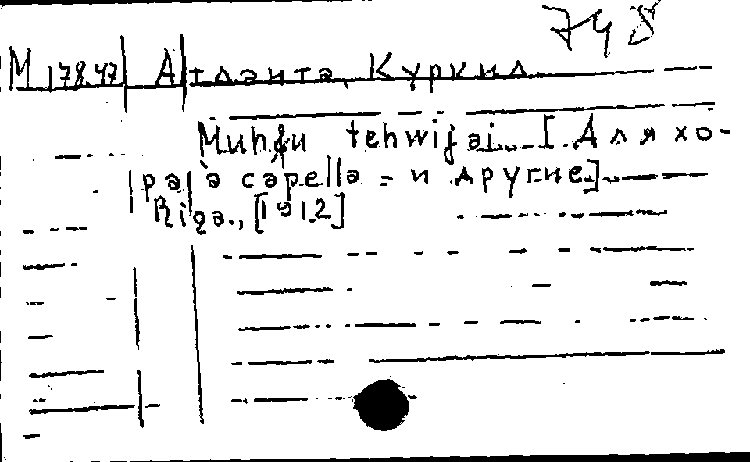 748
М 178.47 Атланта, Куркил
Muhſu tehwijai. [Для хо-
ра a capella - и другие].
Riga., [1912]